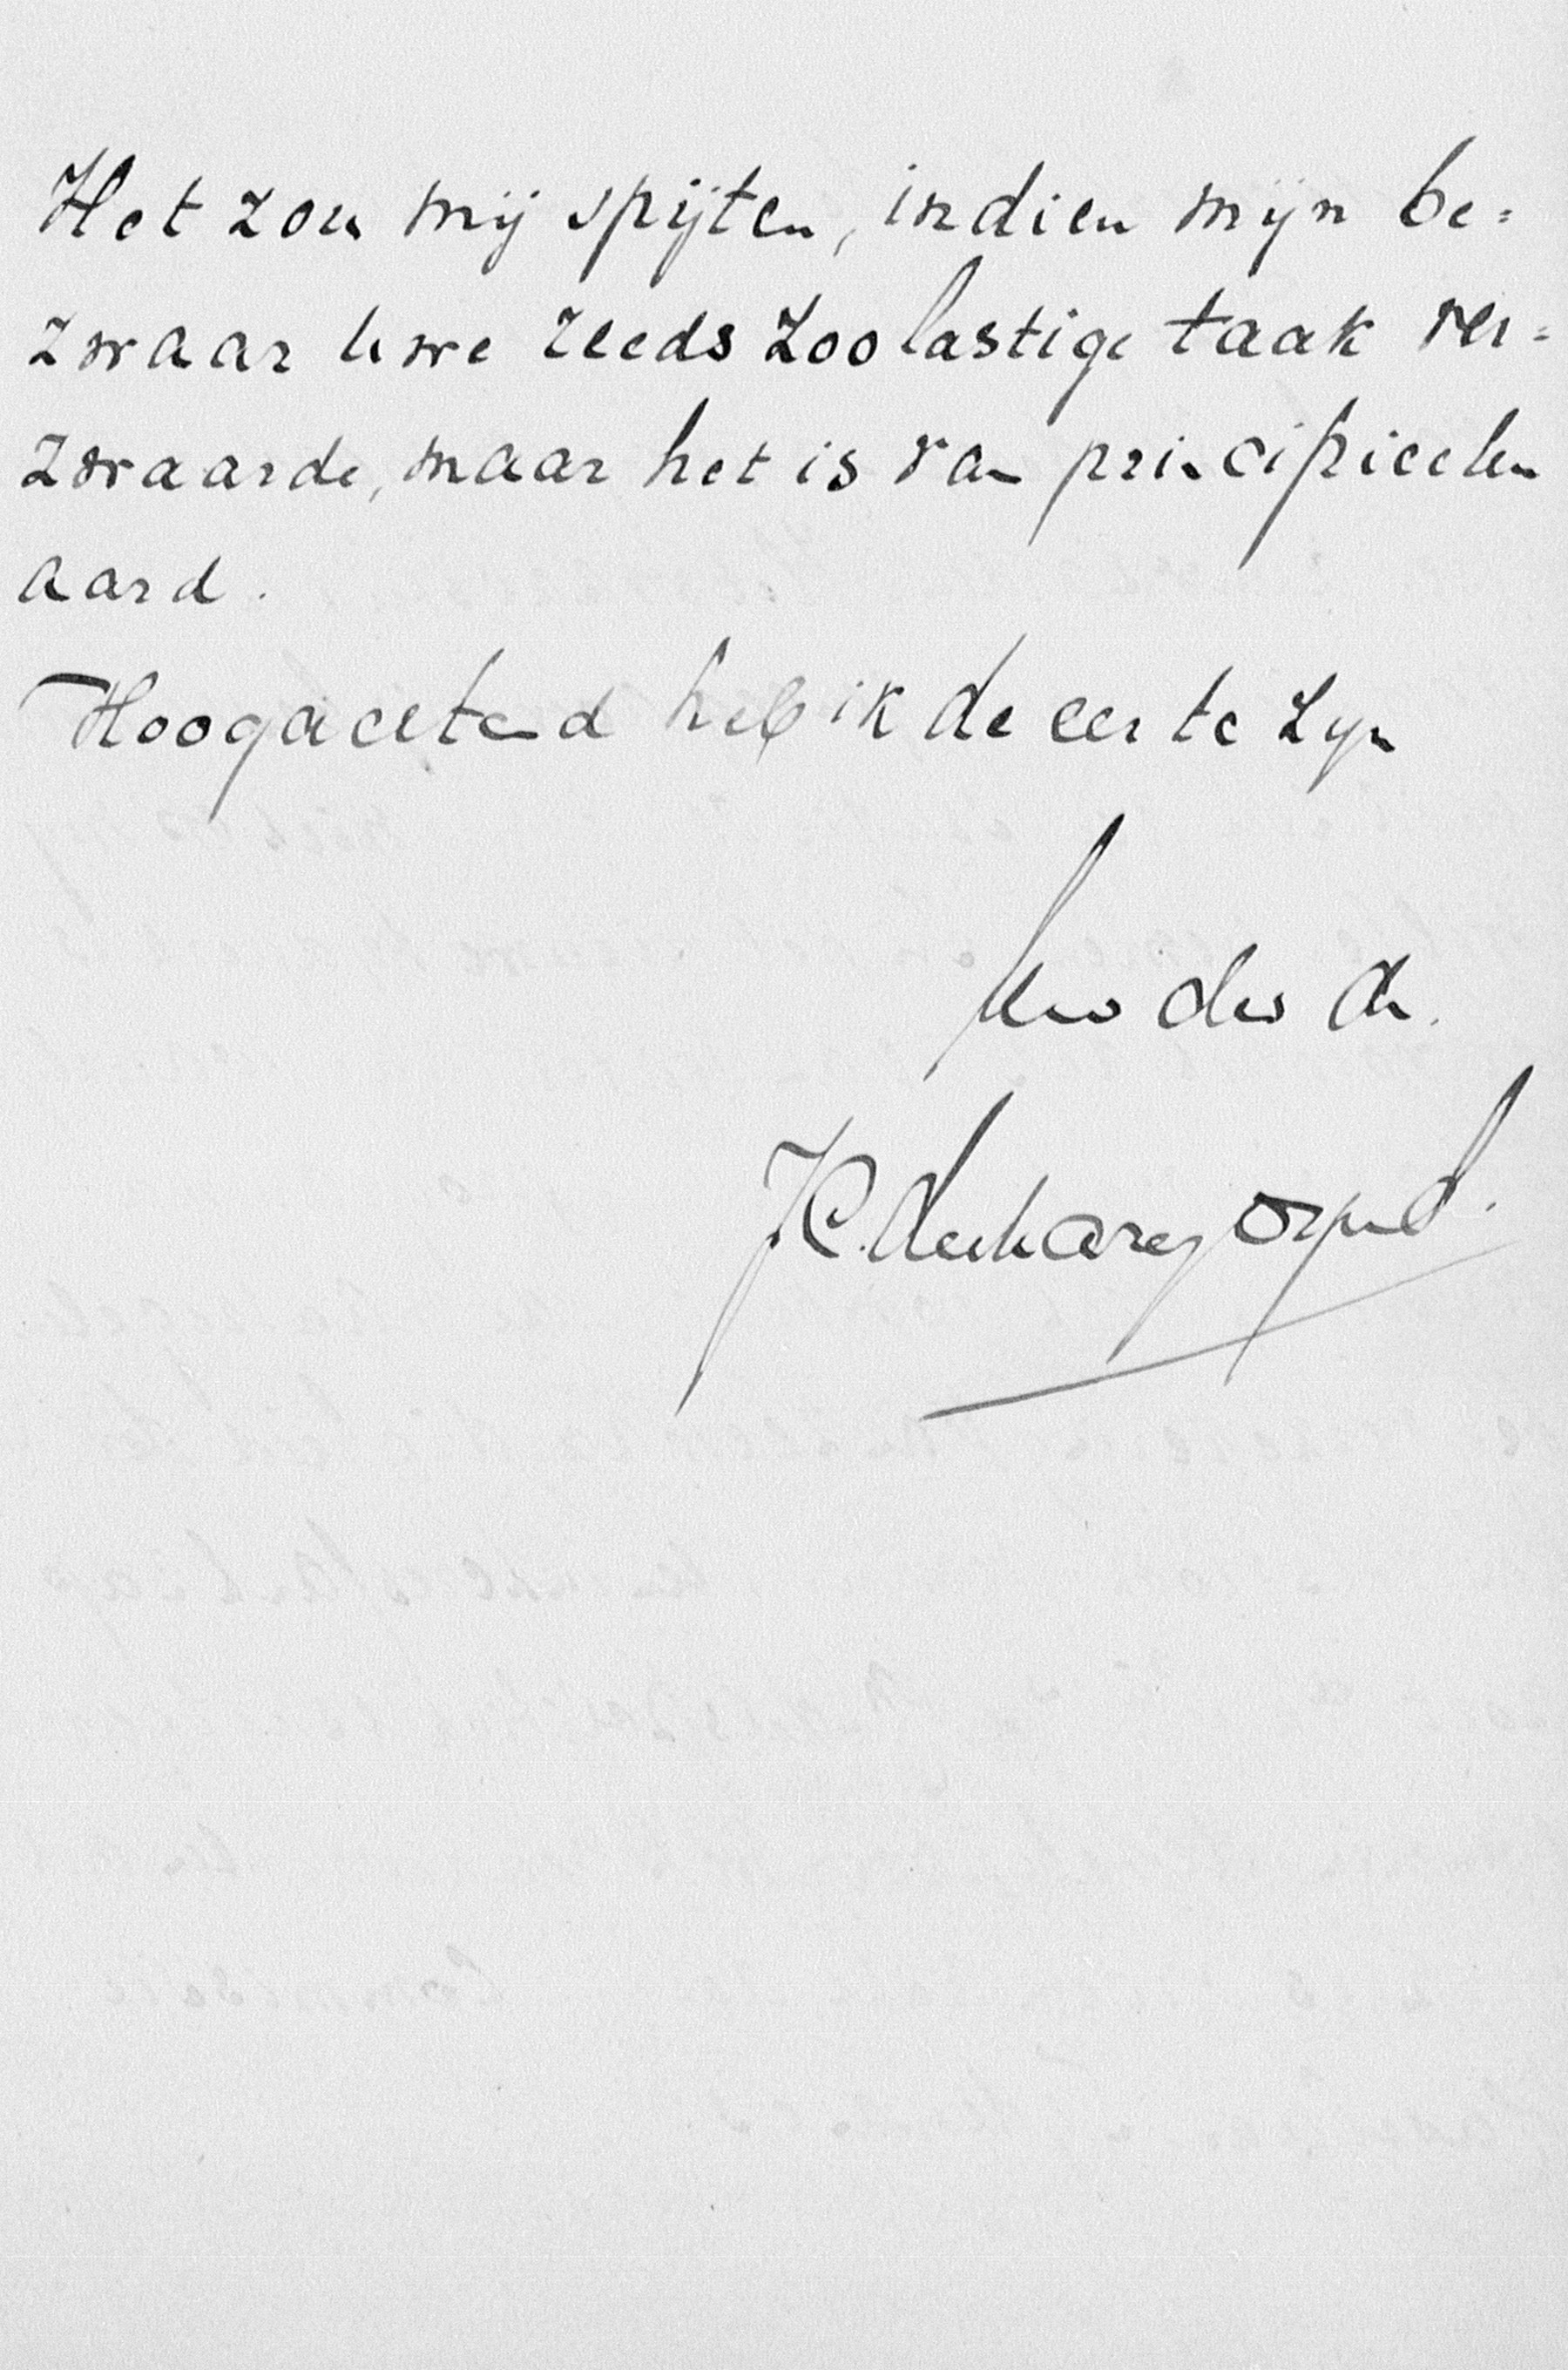 Het zou mij spijten, indien mijn be=
zwaar Uwe reeds zoo lastige taak ver=
zwaarde, maar het is van principieelen
aard.
Hoogachtend heb ik de eer te zijn
Uw dw dr.